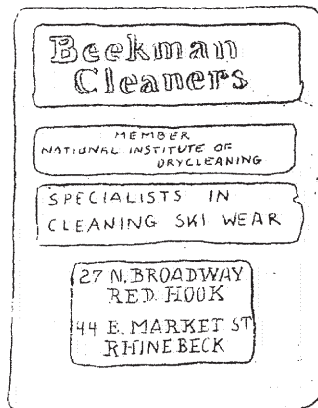 Beekman
Cleaners
MEMBER
NATIONAL INSTITUTE OF
DRYCLEANING
SPECIALISTS IN
CLEANING SKI WEAR
27 N. BROADWAY
RED HOOK
44 E. MARKET ST
RHINEBECK